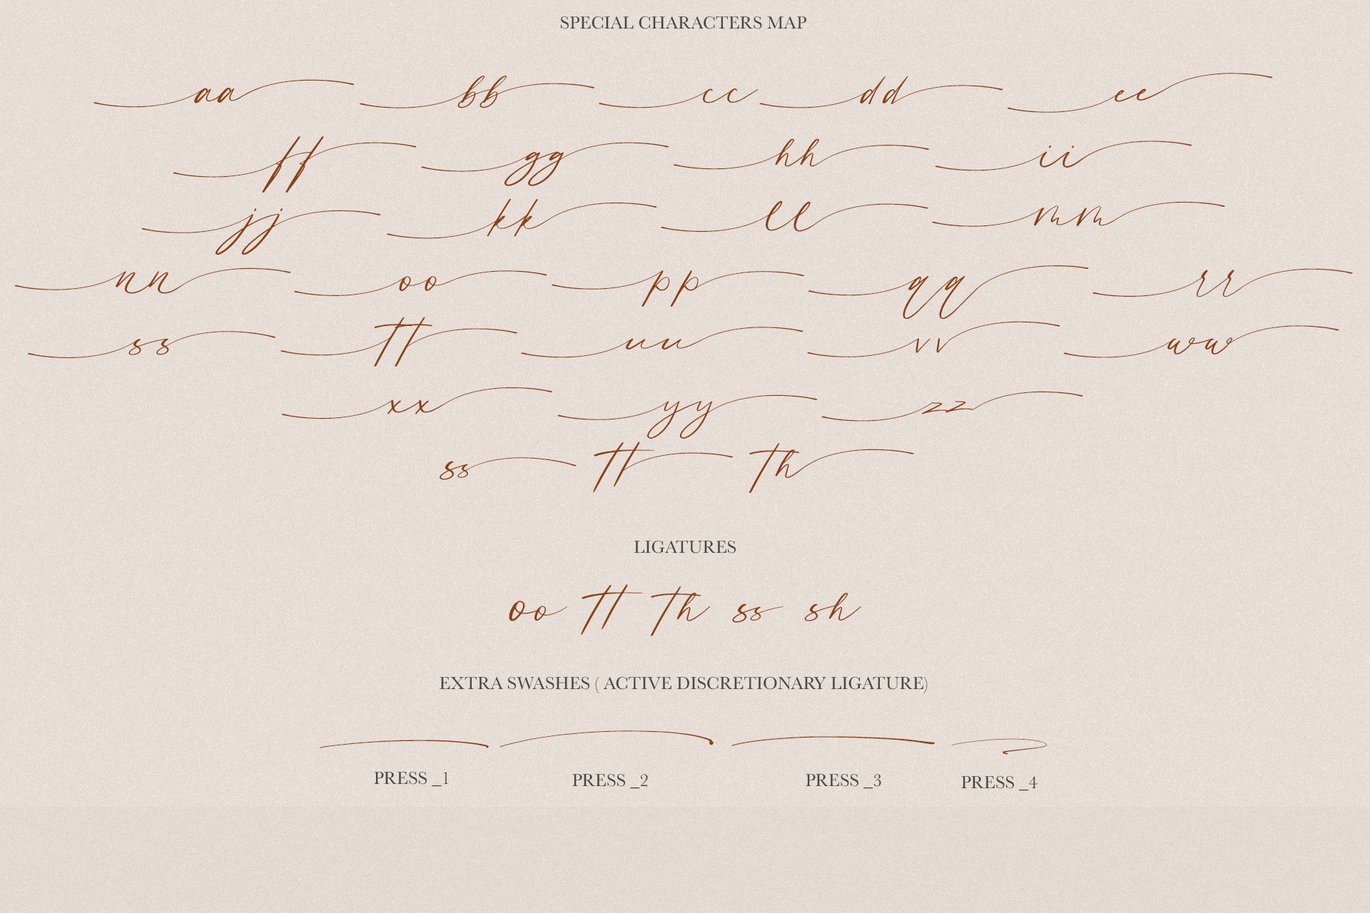 SPECIAL CHARACTERS MAP
aa bb cc dd ee
ff gg hh ii
jj kk ll mm
nn oo pp qq rr
ss tt uu vv ww
xx yy zz
ss tt th
LIGATURES
oo tt th ss sh
EXTRA SWASHES ( ACTIVE DISCRETIONARY LIGATURE)
PRESS _1 PRESS _2 PRESS _3 PRESS _4